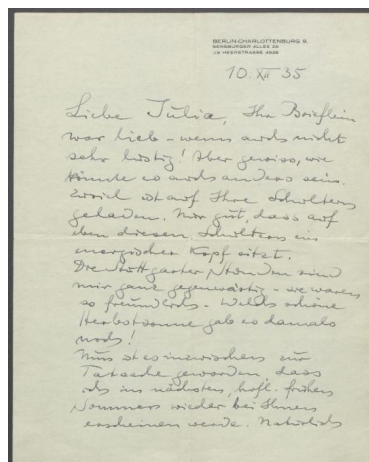 BERLIN-CHARLOTTENBURG 9,
SENSBURGER ALLEE 26
J 9 HEERSTRASSE
10. XII 35
Liebe Julia, Ihr Brieflein
war lieb – wenn auch nicht
sehr lustig! Aber gewiss, wie
könnte es auch anders sein.
Zuviel ist auf Ihre Schultern
geladen. Nur gut, dass auf
eben diesen Schultern ein
energischer Kopf sitzt.
Die Stuttgarter Stunden sind
mir ganz gegenwärtig – sie waren
so freundlich – Welch schöne
Herbstsonne gab es damals
noch!
Nun ist es inzwischen zur
Tatsache geworden, dass
ich im nächsten, hoffl. frühen
Sommer wieder bei Ihnen
erscheinen werde. Natürlich